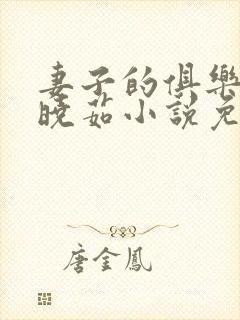 妻子的俱樂
晚茹小說免
唐金鳳